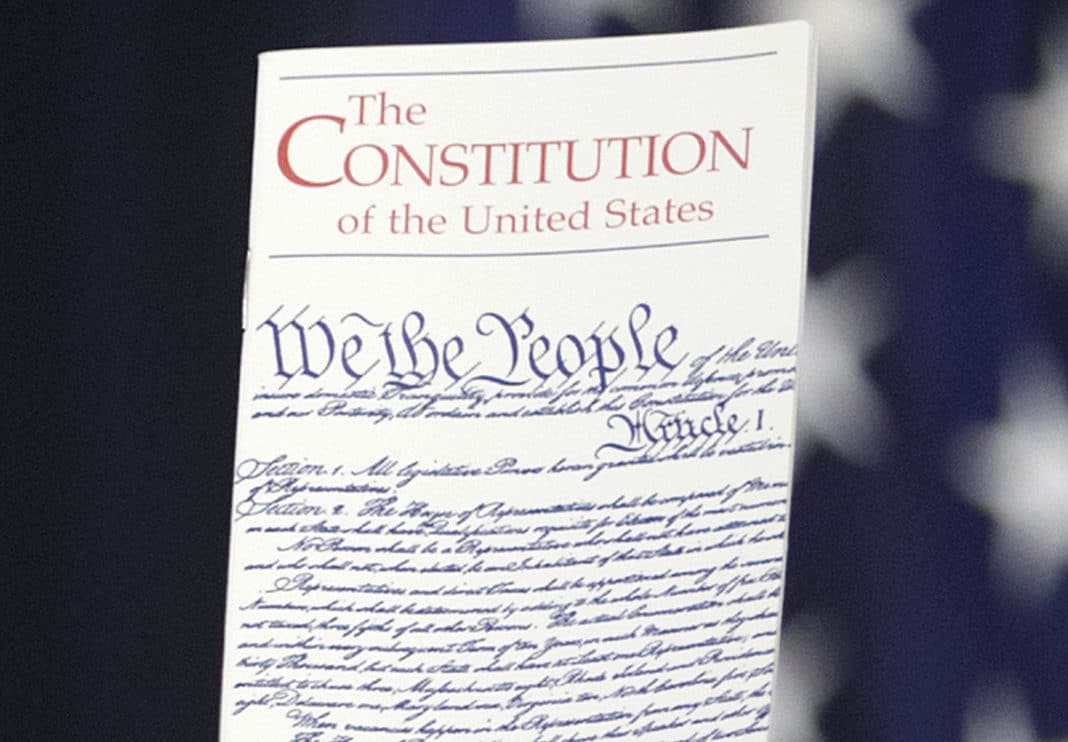 The
CONSTITUTION
of the United States
We the People of the Uni
insure domestic Tranquility, provide for the common defence, promo
and our Posterity, do ordain and establish this Constitution for the U
Article. I.
Section. 1. All legislative Powers herein granted shall be vested in
of Representatives.
Section. 2. The House of Representatives shall be composed of Mem
in each State shall have Qualifications requisite for Electors of the most numerou
No Person shall be a Representative who shall not have attained t
and who shall not, when elected, be an Inhabitant of that State in which he sh
Representatives and direct Taxes shall be apportioned among the several
Numbers, which shall be determined by adding to the whole Number of free
not taxed, three fifths of all other Persons. The actual Enumeration shall b
and within every subsequent Term of ten Years, in such Manner as they shall
thirty Thousand, but each State shall have at Least one Representative; and
entitled to chuse three, Massachusetts eight, Rhode Island and Providence
eight, Delaware one, Maryland six, Virginia ten, North Carolina five, So
When vacancies happen in the Representation from any State, the